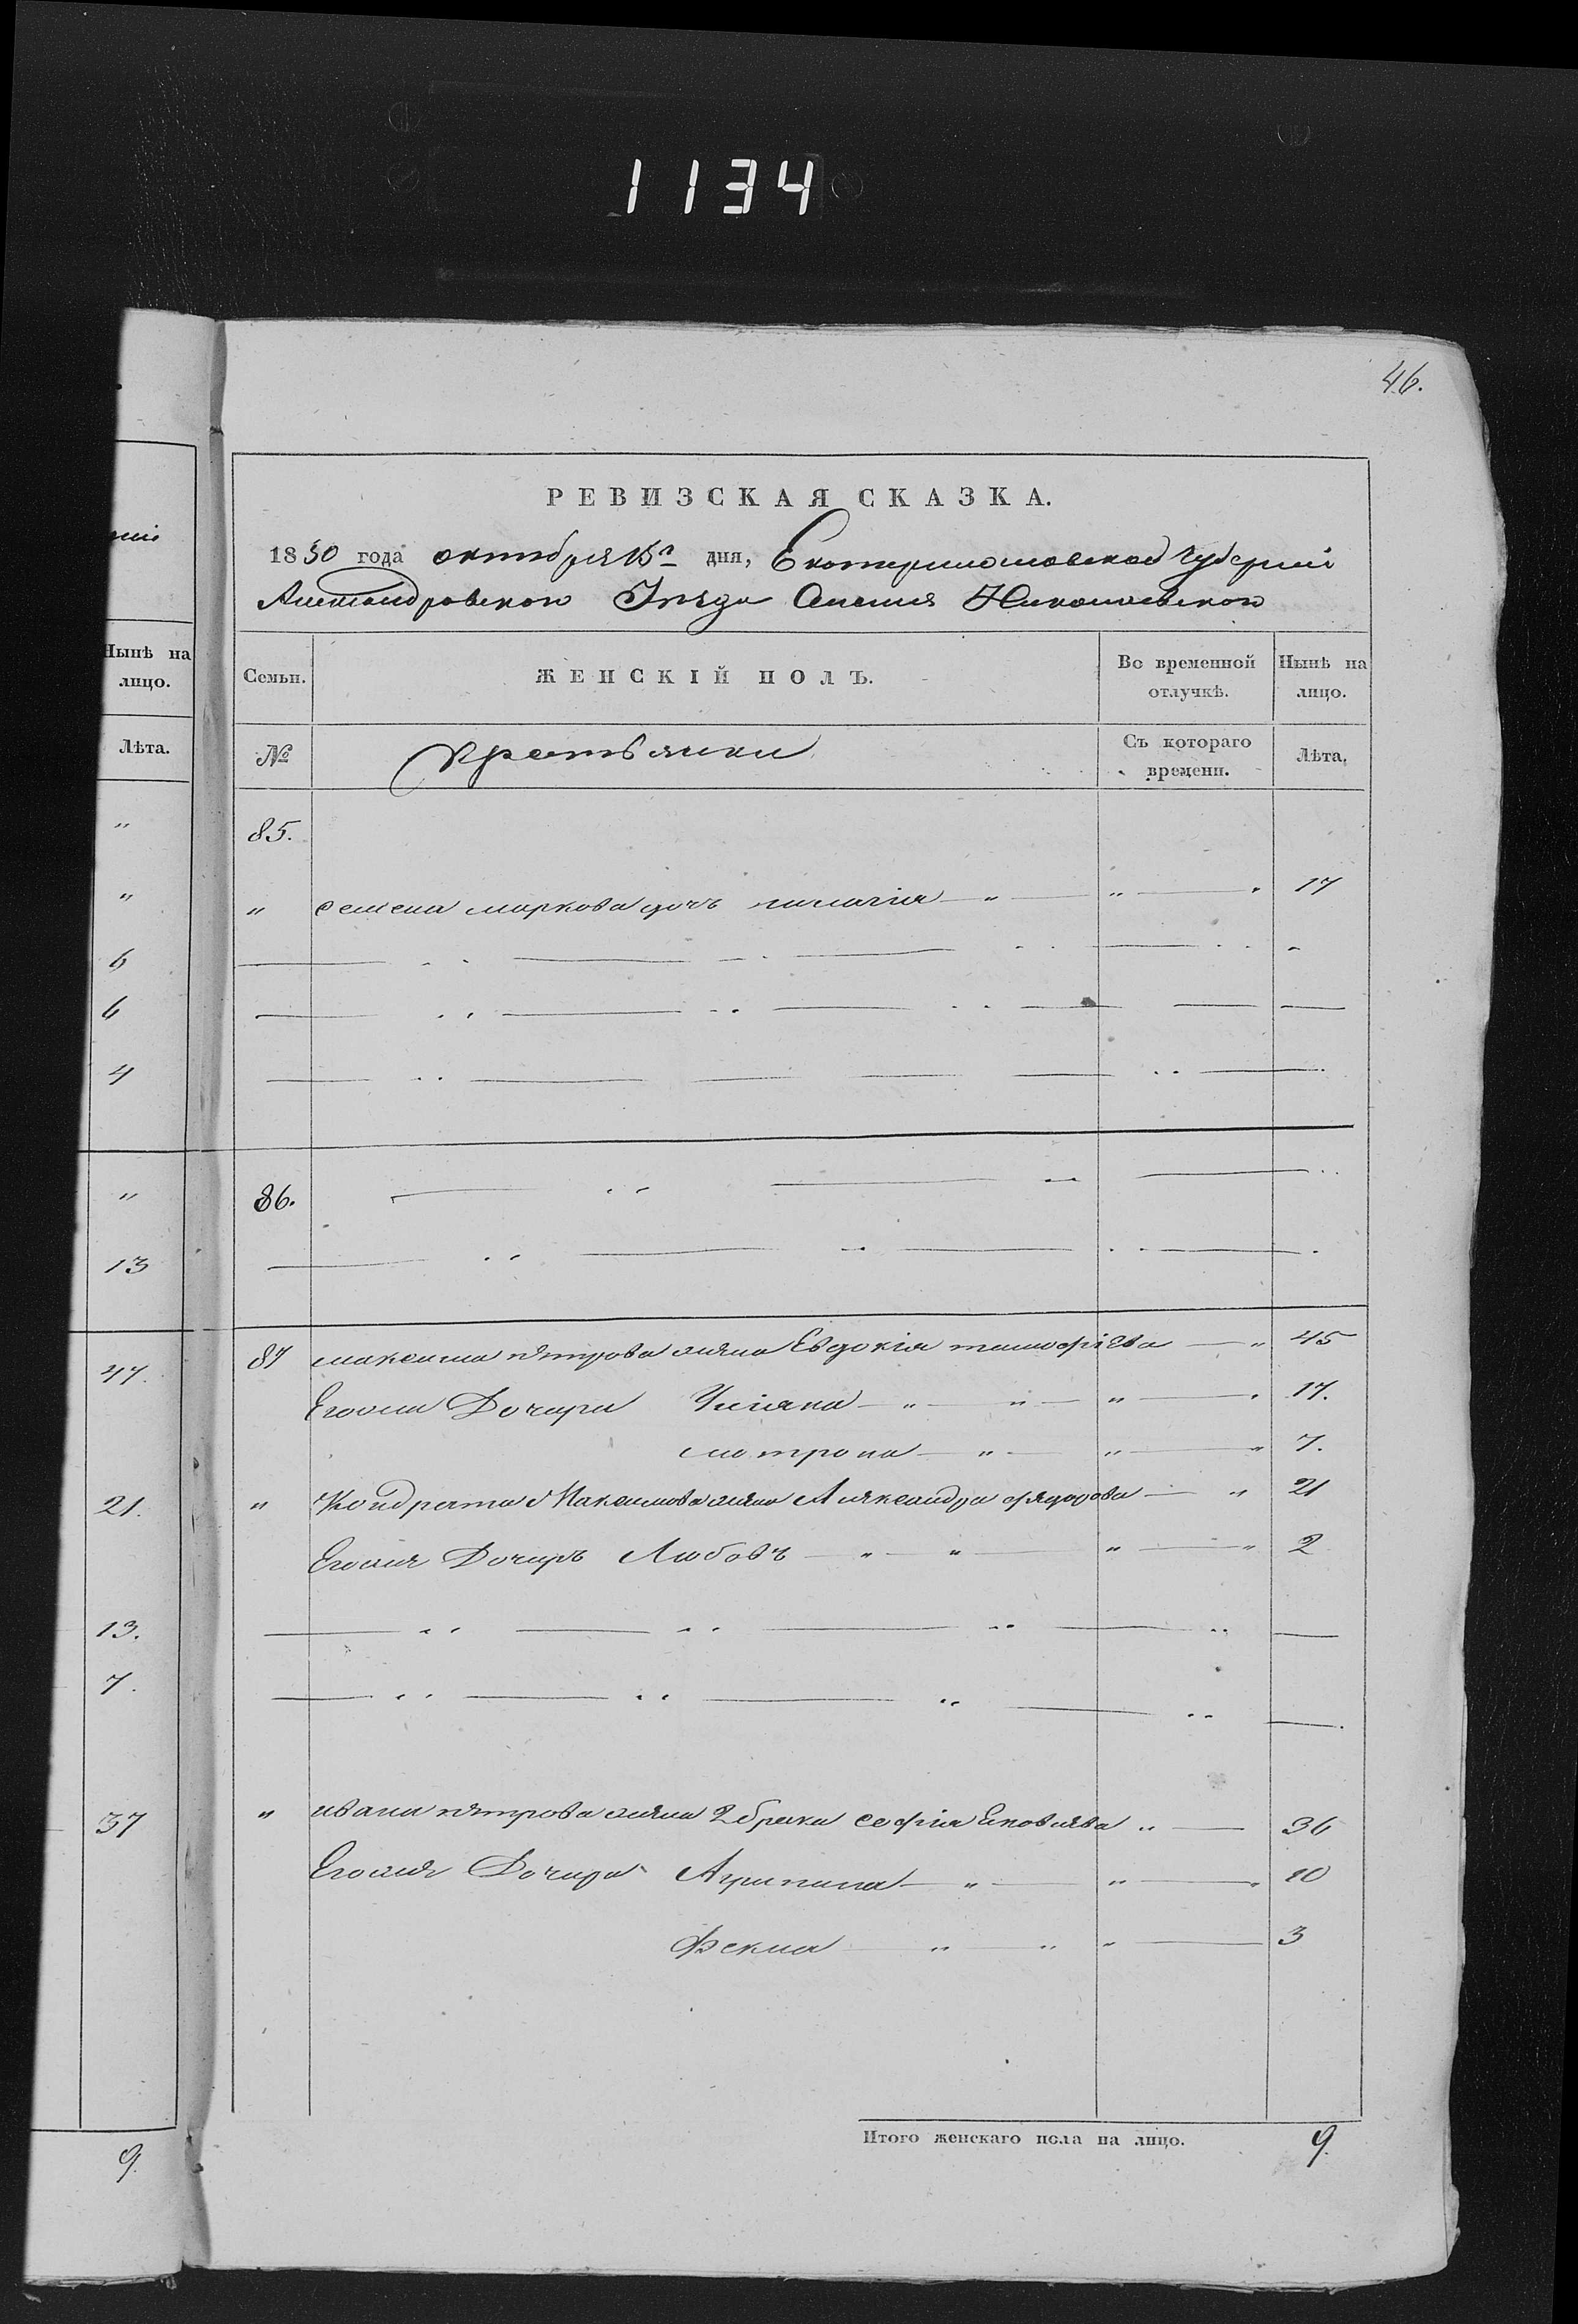 1134
46.
РЕВИЗСКАЯ СКАЗКА.
1850 года октября 15го дня, Екатеринославской губерніи
Александровскои Уезда Селения Николаевскои
Нынѣ на лицо.
Лѣта.
"
"
6
6
4
"
13
47.
21.
13.
7.
37
9.
Семьи. ЖЕНСКІЙ ПОЛЪ. Во временной отлучкѣ. Нынѣ на лицо.
№ Крестьянки Съ котораго времени. Лѣта.
85.
" семена маркова дочъ " " 17
86.
87 максима пятрова жяна Евдокія тимофіева " 45
Егоже Дочири Уліяна " " " 17.
матрона " " " 7.
" Кондрата Максимова жяна Аляксандра фядорова " 21
Егожя Дочиръ Любовъ " " " " 2
" ивана пятрова жяна 2 брака софия Яковлява " 36
Егожя Дочири Агрипина " " " 10
Фекла " " " 3
Итого женскаго пола на лицо. 9.